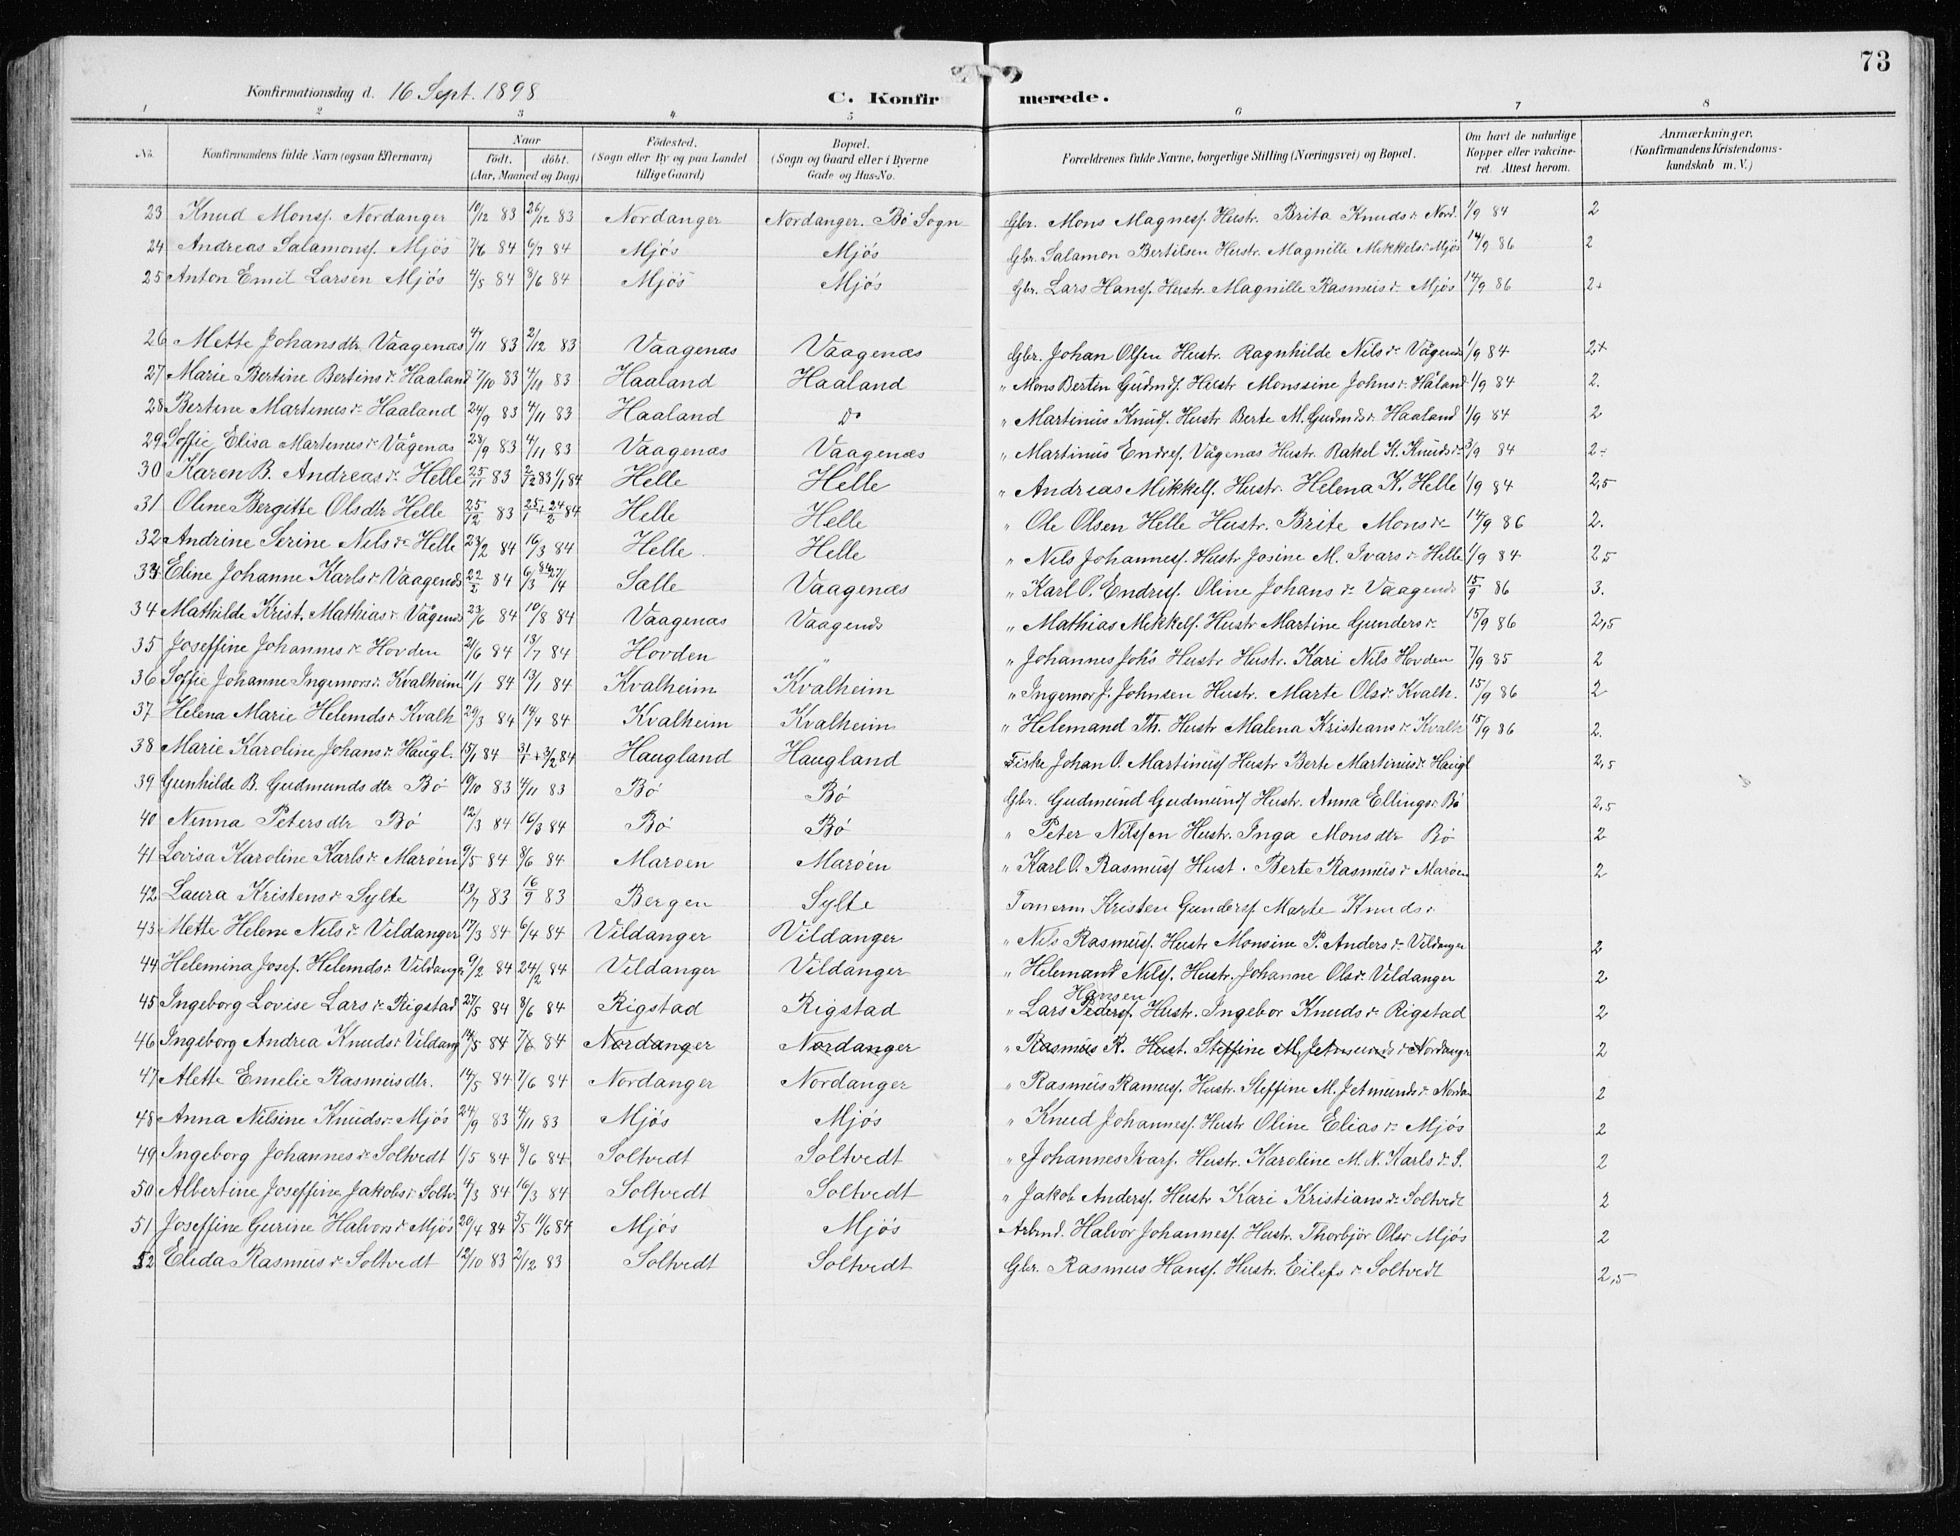 73
Konfirmationsdag d. 16 Sept. 1898
C. Konfirmerede.
1 2 3 4 5 6 7 8
No. Konfirmandens fulde Navn (ogsaa Efternavn) Naar født. døbt. (Aar, Maaned og Dag) Fødested. (Sogn eller By og paa Landet tillige Gaard) Bopæl. (Sogn og Gaard eller i Byerne Gade og Hus-No. Forældrenes fulde Navne, borgerlige Stilling (Næringsvei) og Bopæl. Om havt de naturlige Kopper eller vakcineret. Attest herom. Anmærkninger. (Konfirmandens Kristendomskundskab m. V.)
23 Knud Monsf. Nordanger 10/12 83 26/12 83 Nordanger Nordanger. Bø Sogn Gbr. Mons Magnesf. Hustr. Brita Knudsdr Nord. 1/9 84 2
24 Andreas Salamonsf. Mjøs 7/6 84 6/7 84 Mjøs Mjøs Gbr. Salamon Bertilsen Hustr. Magnille Mikkelsdr Mjøs 14/9 86 2
25 Anton Emil Larsen Mjøs 4/5 84 8/6 84 Mjøs Mjøs Gbr. Lars Hansf. Hustr. Magnille Rasmusdr Mjøs 14/9 86 2+
26 Mette Johansdtr Vaagenæs 4/11 83 2/12 83 Vaagenæs Vaagenæs Gbr. Johan Olsen Hustr. Ragnhilde Nilsdr Vågenæs 1/9 84 2+
27 Marie Bertine Bertinsdr Haaland 7/10 83 4/11 83 Haaland Haaland " Mons Bertin Gudmdf. Hustr Monssine Johnsdr Håland 1/9 84 2.
28 Bertine Martinusdr Haaland 24/9 83 4/11 83 Haaland Do " Martinus Knudf. Hustr Berte M. Gudmdsdr Haaland 1/9 84 2
29 Soffie Elisa Martinusdr Vågenæs 28/9 83 4/11 83 Vaagenæs Vaagenæs " Martinus Endresf. Vågenæs Hustr. Rakel K. Knudsdr 3/9 84 2-
30 Karen B. Andreasdr Helle 25/11 83 2/12 83 1/1 84 Helle Helle " Andreas Mikkelf. Hustr. Helena K. Helle 1/9 84 2,5
31 Oline Bergitte Olsdtr Helle 25/12 83 25/1 + 24/2 84 Helle Helle " Ole Olsen Helle Hustr. Brite Monsdr 14/9 86 2.
32 Andrine Serine Nilsdr Helle 23/2 84 16/3 84 Helle Helle " Nils Johannesf. Hustr Josine M. Ivarsdr Helle 1/9 84 2,5
33 Eline Johanne Karlsdr Vaagenes 22/2 84 6/3 84 27/4 Salle Vaagenæs " Karl O. Endresf. Oline Johansdr Vaagenes 15/9 86 3.
34 Mathilde Krist. Mathiasdr Vågenes 23/6 84 10/8 84 Vaagenæs Vaagenes " Mathias Mikkelf. Hustr Martine Gundersdr 15/9 86 2,5
35 Joseffine Johannesdr Hovden 21/6 84 13/7 84 Hovden " " Johannes Johs Hustr Hustr. Kari Nils Hovden 7/9 85 2
36 Soffie Johanne Ingemorsdr Kvalheim 11/1 84 13/1 84 Kvalheim Kvalheim " Ingemor J. Johnsen Hustr. Marte Olsdr Kvalh. 15/9 86 2
37 Helena Marie Helemdsdr Kvalh 29/3 84 14/4 84 Kvalheim Kvalheim " Helemand Th. Hustr Malena Kristiansdr Kvalh 15/9 86 2.
38 Marie Karoline Johansdr Haugl. 15/1 84 31/1 + 3/2 84 Haugland Haugland Fiske Johan O. Martinusf Hustr Berte Martinusdr Haugl 2,5
39 Gunhilde B. Gudmundsdtr Bø 19/10 83 4/11 83 Bø Bø Gbr. Gudmund Gudmundf Hustr. Anna Ellingsdr Bø 2,5
40 Ninna Petersdtr Bø 12/3 84 16/3 84 Bø Bø " Peter Nilssen Hustr. Inga Monsdtr Bø 2
41 Lovisa Karoline Karlsdr Marøen 9/5 84 8/6 84 Marøen Marøen " Karl O. Rasmusf Hust. Berte Rasmusdr Marøen 2
42 Laura Kristensdr Sylte 13/7 83 16/9 83 Bergen Sylte Tømerm Kristen Gundersf Marte Knudsdr
43 Mette Helene Nilsdr Vildanger 17/3 84 6/4 84 Vildanger Vildanger " Nils Rasmusf. Hustr Monsine P. Andersdr Vildanger 2
44 Helemina Josef. Helemdsdr Vildanger 9/2 84 24/2 84 Vildanger Vildanger " Helemand Nilsf. Hustr. Johanne Olsdr Vildanger 2
45 Ingeborg Lovise Larsdr Rigstad 27/5 84 8/6 84 Rigstad Rigstad " Lars Pedersf. Hansen Hustr. Ingebor Knudsdr Rigstad 2
46 Ingeborg Andrea Knudsdr Vildang 14/5 84 7/6 84 Nordanger Nordanger " Rasmus R. Hust. Steffine M. Jetmundsdr Nordangr 2
47 Alette Emelie Rasmusdtr. 14/5 84 7/6 84 Nordanger Nordanger " Rasmus Ramusf. Hustr. Steffine M. Jetmundsdr Norda 2
48 Anna Nilsine Knudsdr Mjøs 24/9 83 4/11 83 Mjøs Mjøs " Knud Johannesf. Hustr Oline Eliasdr Mjøs 2
49 Ingeborg Johannesdr Soltvedt 1/5 84 8/6 84 Soltvedt Soltvedt " Johannes Ivarsf. Hustr. Karoline M. N. Karlsdr S. 2
50 Albertine Joseffine Jakobsdr Soltv. 4/3 84 16/3 84 Soltvedt Soltvedt " Jakob Andersf. Hustr Kari Kristiansdr Soltvedt 2
51 Joseffine Gurine Halvorsdr Mjøs 20/4 84 5/5 11/6 84 Mjøs Mjøs Arbmd. Halvor Johannesf. Hustr. Thorbjør Olsdr Mjøs 2
52 Elida Rasmusdr Soltvedt 12/10 83 2/12 83 Soltvedt Soltvedt Gbr. Rasmus Hansf. Hustr. Eilefsdr Soltvedt 2,5